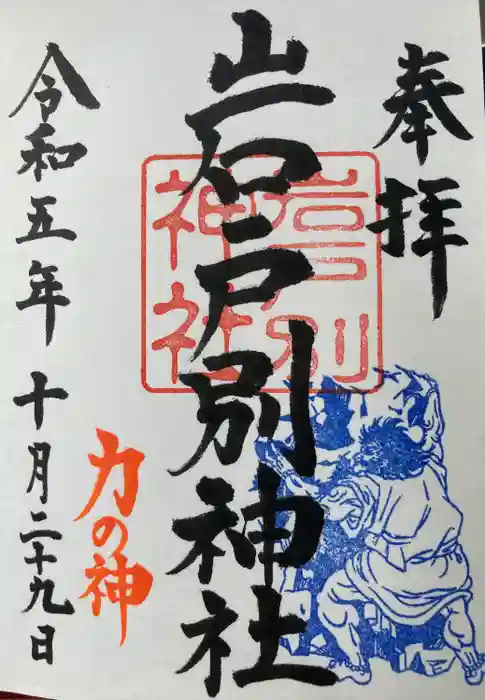 奉拝
岩戸別神社
岩戸別
神社
力の神
令和五年十月二十九日